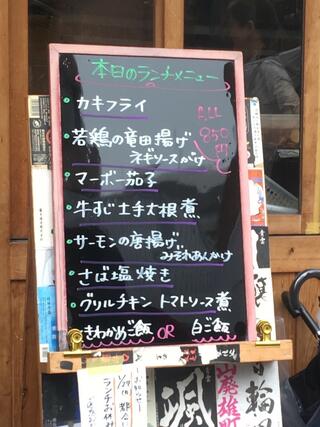 本日のランチメニュー
・カキフライ
ALL
850
円
・若鶏の竜田揚げ
ネギソースがけ
・マーボー茄子
・牛すじ土手大根煮
・サーモンの唐揚げ
みぞれあんかけ
・さば塩焼き
・グリルチキン トマトソース煮
きわかめご飯 OR 白ご飯